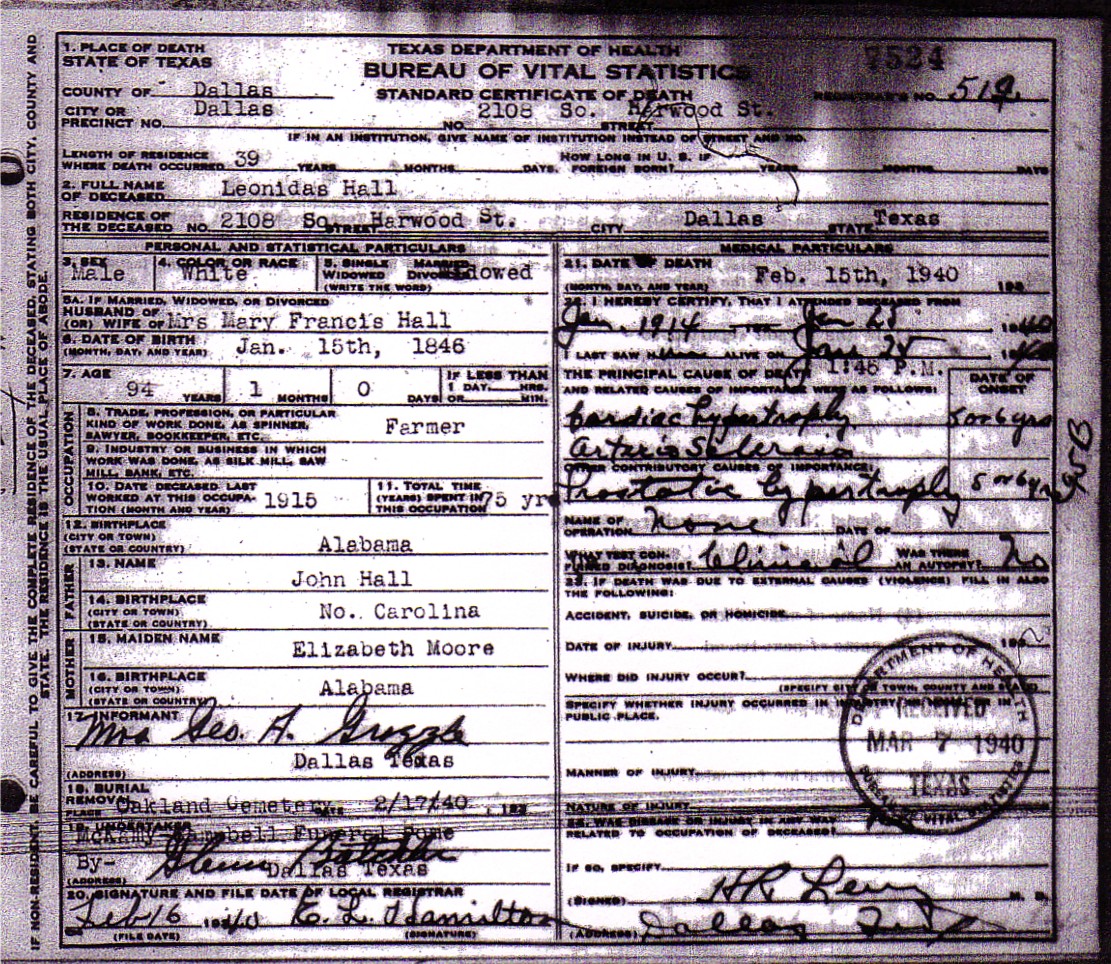 IF NON-RESIDENT, BE CAREFUL TO GIVE THE COMPLETE RESIDENCE OF THE DECEASED, STATING BOTH CITY, COUNTY AND
STATE. THE RESIDENCE IS THE USUAL PLACE OF ABODE.
TEXAS DEPARTMENT OF HEALTH
BUREAU OF VITAL STATISTICS
STANDARD CERTIFICATE OF DEATH
7524
REGISTRAR'S NO. 519
1. PLACE OF DEATH
STATE OF TEXAS
COUNTY OF Dallas
CITY OR PRECINCT NO. Dallas NO. 2108 So. Harwood St. STREET
IF IN AN INSTITUTION, GIVE NAME OF INSTITUTION INSTEAD OF STREET AND NO.
LENGTH OF RESIDENCE WHERE DEATH OCCURRED 39 YEARS MONTHS DAYS. HOW LONG IN U. S. IF FOREIGN BORN? YEARS MONTHS DAYS
2. FULL NAME OF DECEASED Leonidas Hall
RESIDENCE OF THE DECEASED NO. 2108 So. Harwood St. STREET CITY Dallas STATE Texas
PERSONAL AND STATISTICAL PARTICULARS
3. SEX Male
4. COLOR OR RACE White
5. SINGLE MARRIED WIDOWED DIVORCED (WRITE THE WORD) Widowed
5A. IF MARRIED, WIDOWED, OR DIVORCED
HUSBAND OF (OR) WIFE OF Mrs Mary Francis Hall
6. DATE OF BIRTH (MONTH, DAY, AND YEAR) Jan. 15th, 1846
7. AGE 94 YEARS 1 MONTHS 0 DAYS IF LESS THAN 1 DAY HRS. OR MIN.
OCCUPATION
8. TRADE, PROFESSION, OR PARTICULAR KIND OF WORK DONE, AS SPINNER, SAWYER, BOOKKEEPER, ETC. Farmer
9. INDUSTRY OR BUSINESS IN WHICH WORK WAS DONE, AS SILK MILL, SAW MILL, BANK, ETC.
10. DATE DECEASED LAST WORKED AT THIS OCCUPATION (MONTH AND YEAR) 1915
11. TOTAL TIME (YEARS) SPENT IN THIS OCCUPATION 75 yrs
12. BIRTHPLACE (CITY OR TOWN) (STATE OR COUNTRY) Alabama
FATHER
13. NAME John Hall
14. BIRTHPLACE (CITY OR TOWN) (STATE OR COUNTRY) No. Carolina
MOTHER
15. MAIDEN NAME Elizabeth Moore
16. BIRTHPLACE (CITY OR TOWN) (STATE OR COUNTRY) Alabama
17. INFORMANT Mrs Geo. A. Grizzle
(ADDRESS) Dallas Texas
18. BURIAL REMOVAL PLACE Oakland Cemetery DATE 2/17/40, 193
19. UNDERTAKER Campbell Funeral Home
By- Glenn
(ADDRESS) Dallas Texas
20. SIGNATURE AND FILE DATE OF LOCAL REGISTRAR
Feb 16 1940 E. L. Hamilton
(FILE DATE) (SIGNATURE)
MEDICAL PARTICULARS
21. DATE OF DEATH (MONTH, DAY, AND YEAR) Feb. 15th, 1940 193
22. I HEREBY CERTIFY, THAT I ATTENDED DECEASED FROM
Jan. 1914 Jan 28 1940
I LAST SAW H ALIVE ON Jan 28 1940
THE PRINCIPAL CAUSE OF DEATH 1:45 P.M.
AND RELATED CAUSES OF IMPORTANCE WERE AS FOLLOWS: DATE OF ONSET
Cardiac hypertrophy 5 or 6 yrs
Arterio Sclerosis
OTHER CONTRIBUTORY CAUSES OF IMPORTANCE:
Prostatic hypertrophy 5 or 6 yrs
95B
NAME OF OPERATION None DATE OF
WHAT TEST CONFIRMED DIAGNOSIS? Clinical WAS THERE AN AUTOPSY? No
23. IF DEATH WAS DUE TO EXTERNAL CAUSES (VIOLENCE) FILL IN ALSO THE FOLLOWING:
ACCIDENT, SUICIDE, OR HOMICIDE
DATE OF INJURY 193
WHERE DID INJURY OCCUR?
(SPECIFY CITY OR TOWN, COUNTY AND STATE)
SPECIFY WHETHER INJURY OCCURRED IN INDUSTRY, IN HOME, OR IN PUBLIC PLACE.
MANNER OF INJURY
NATURE OF INJURY
24. WAS DISEASE OR INJURY IN ANY WAY RELATED TO OCCUPATION OF DECEASED?
IF SO, SPECIFY
(SIGNED) H R Levy M. D.
(ADDRESS) Dallas
DEPARTMENT OF HEALTH
RECEIVED
MAR 7 1940
TEXAS
BUREAU OF VITAL STATISTICS